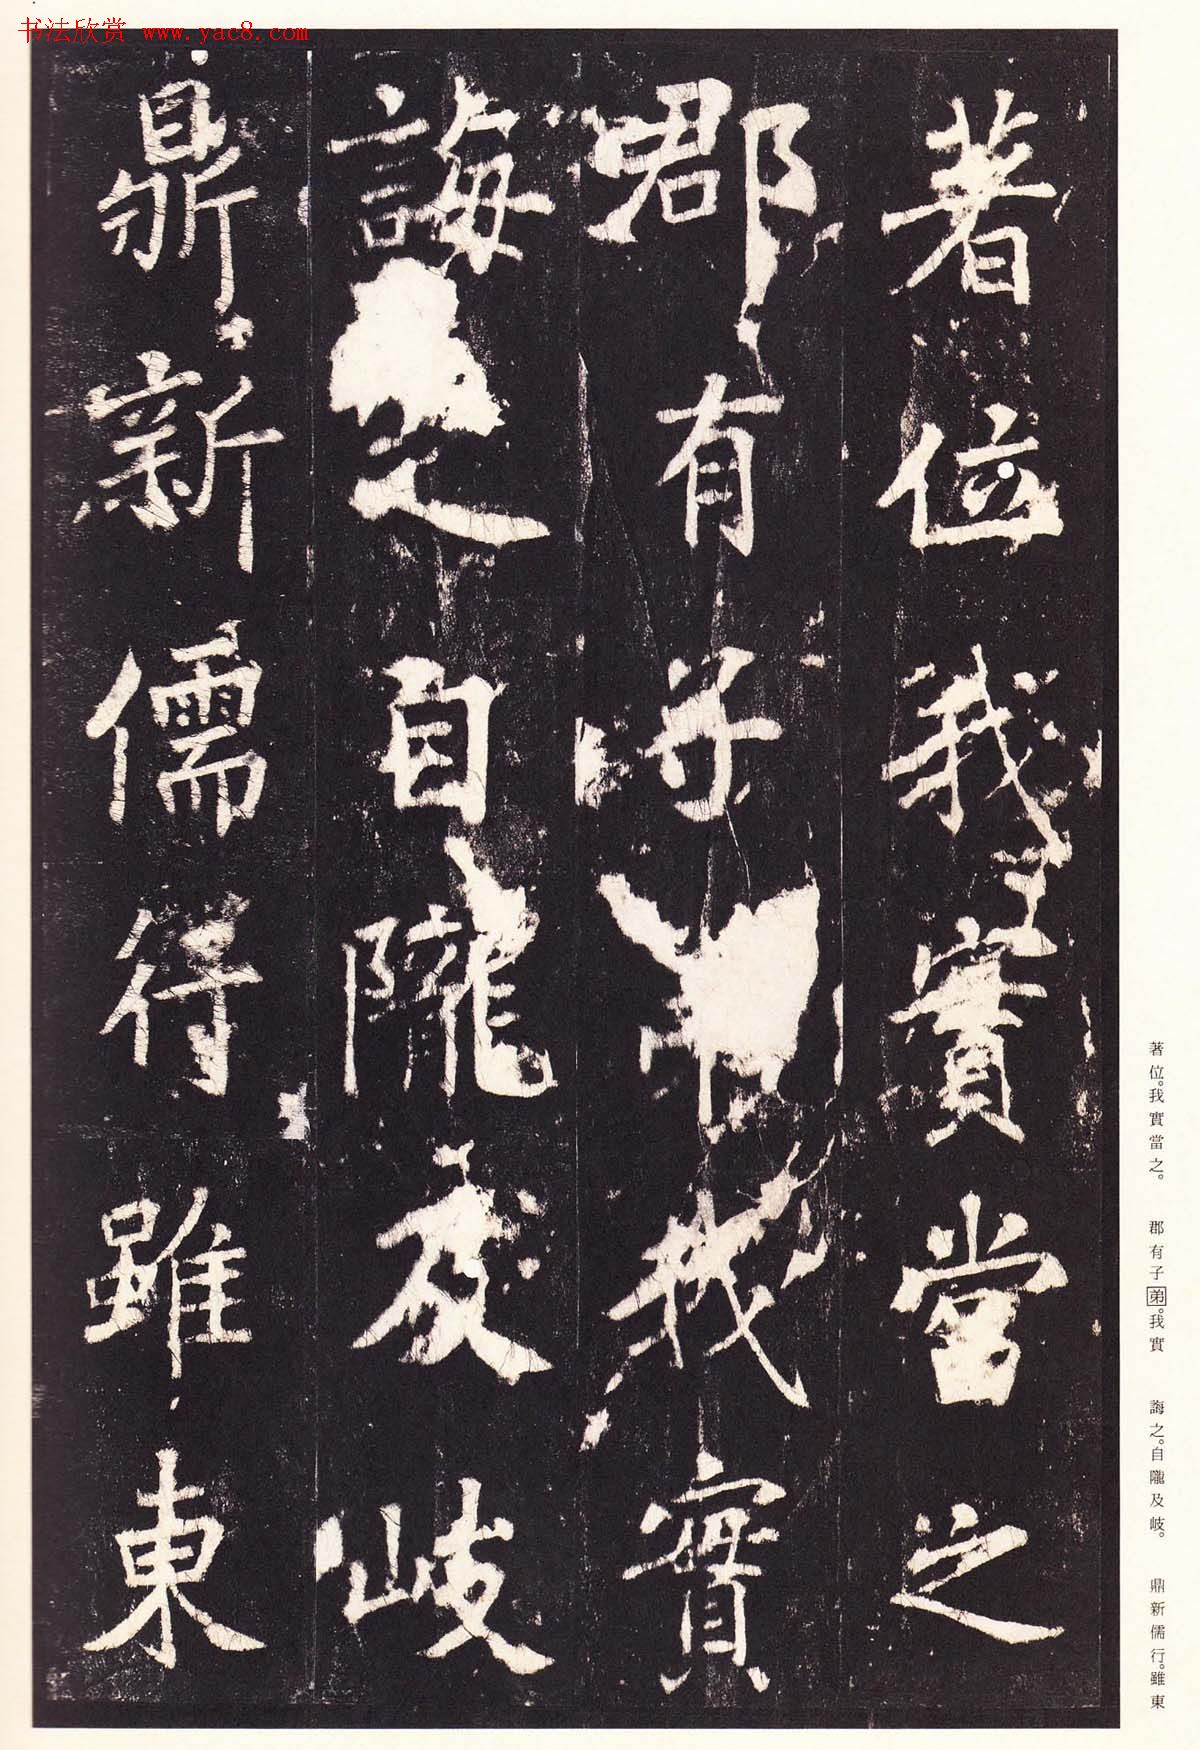 书法欣赏 www.yac8.com
著位我實當之
郡有子我實
誨之自隴及岐
鼎新儒行雖東
著位。我實當之。　郡有子弟。我實　誨之。自隴及岐。　鼎新儒行。雖東